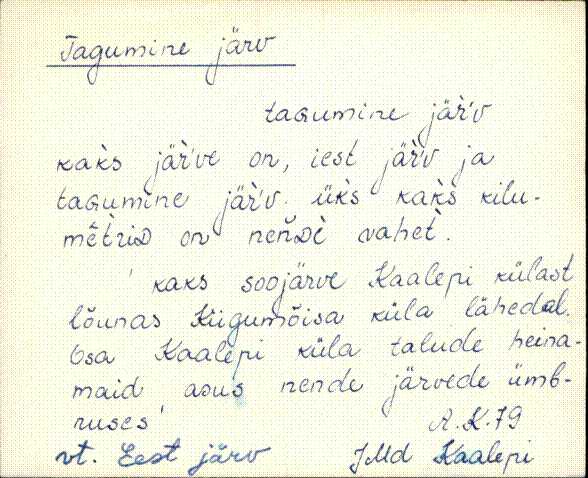 Tagumine järv
taGumine jär̀v
kak̀s jär̀ve on, iest jär̀v ja
taGumine jär̀v. ük̀s kak̀s kilu-
mètriD on neńDè vahet̀.
' kaks soojärve Kaalepi külast
lõunas Kiigumõisa küla lähedal.
Osa Kaalepi küla talude heina-
maid asus nende järvede ümb-
ruses'
A.K.79
vt. Eest järv JMd Kaalepi